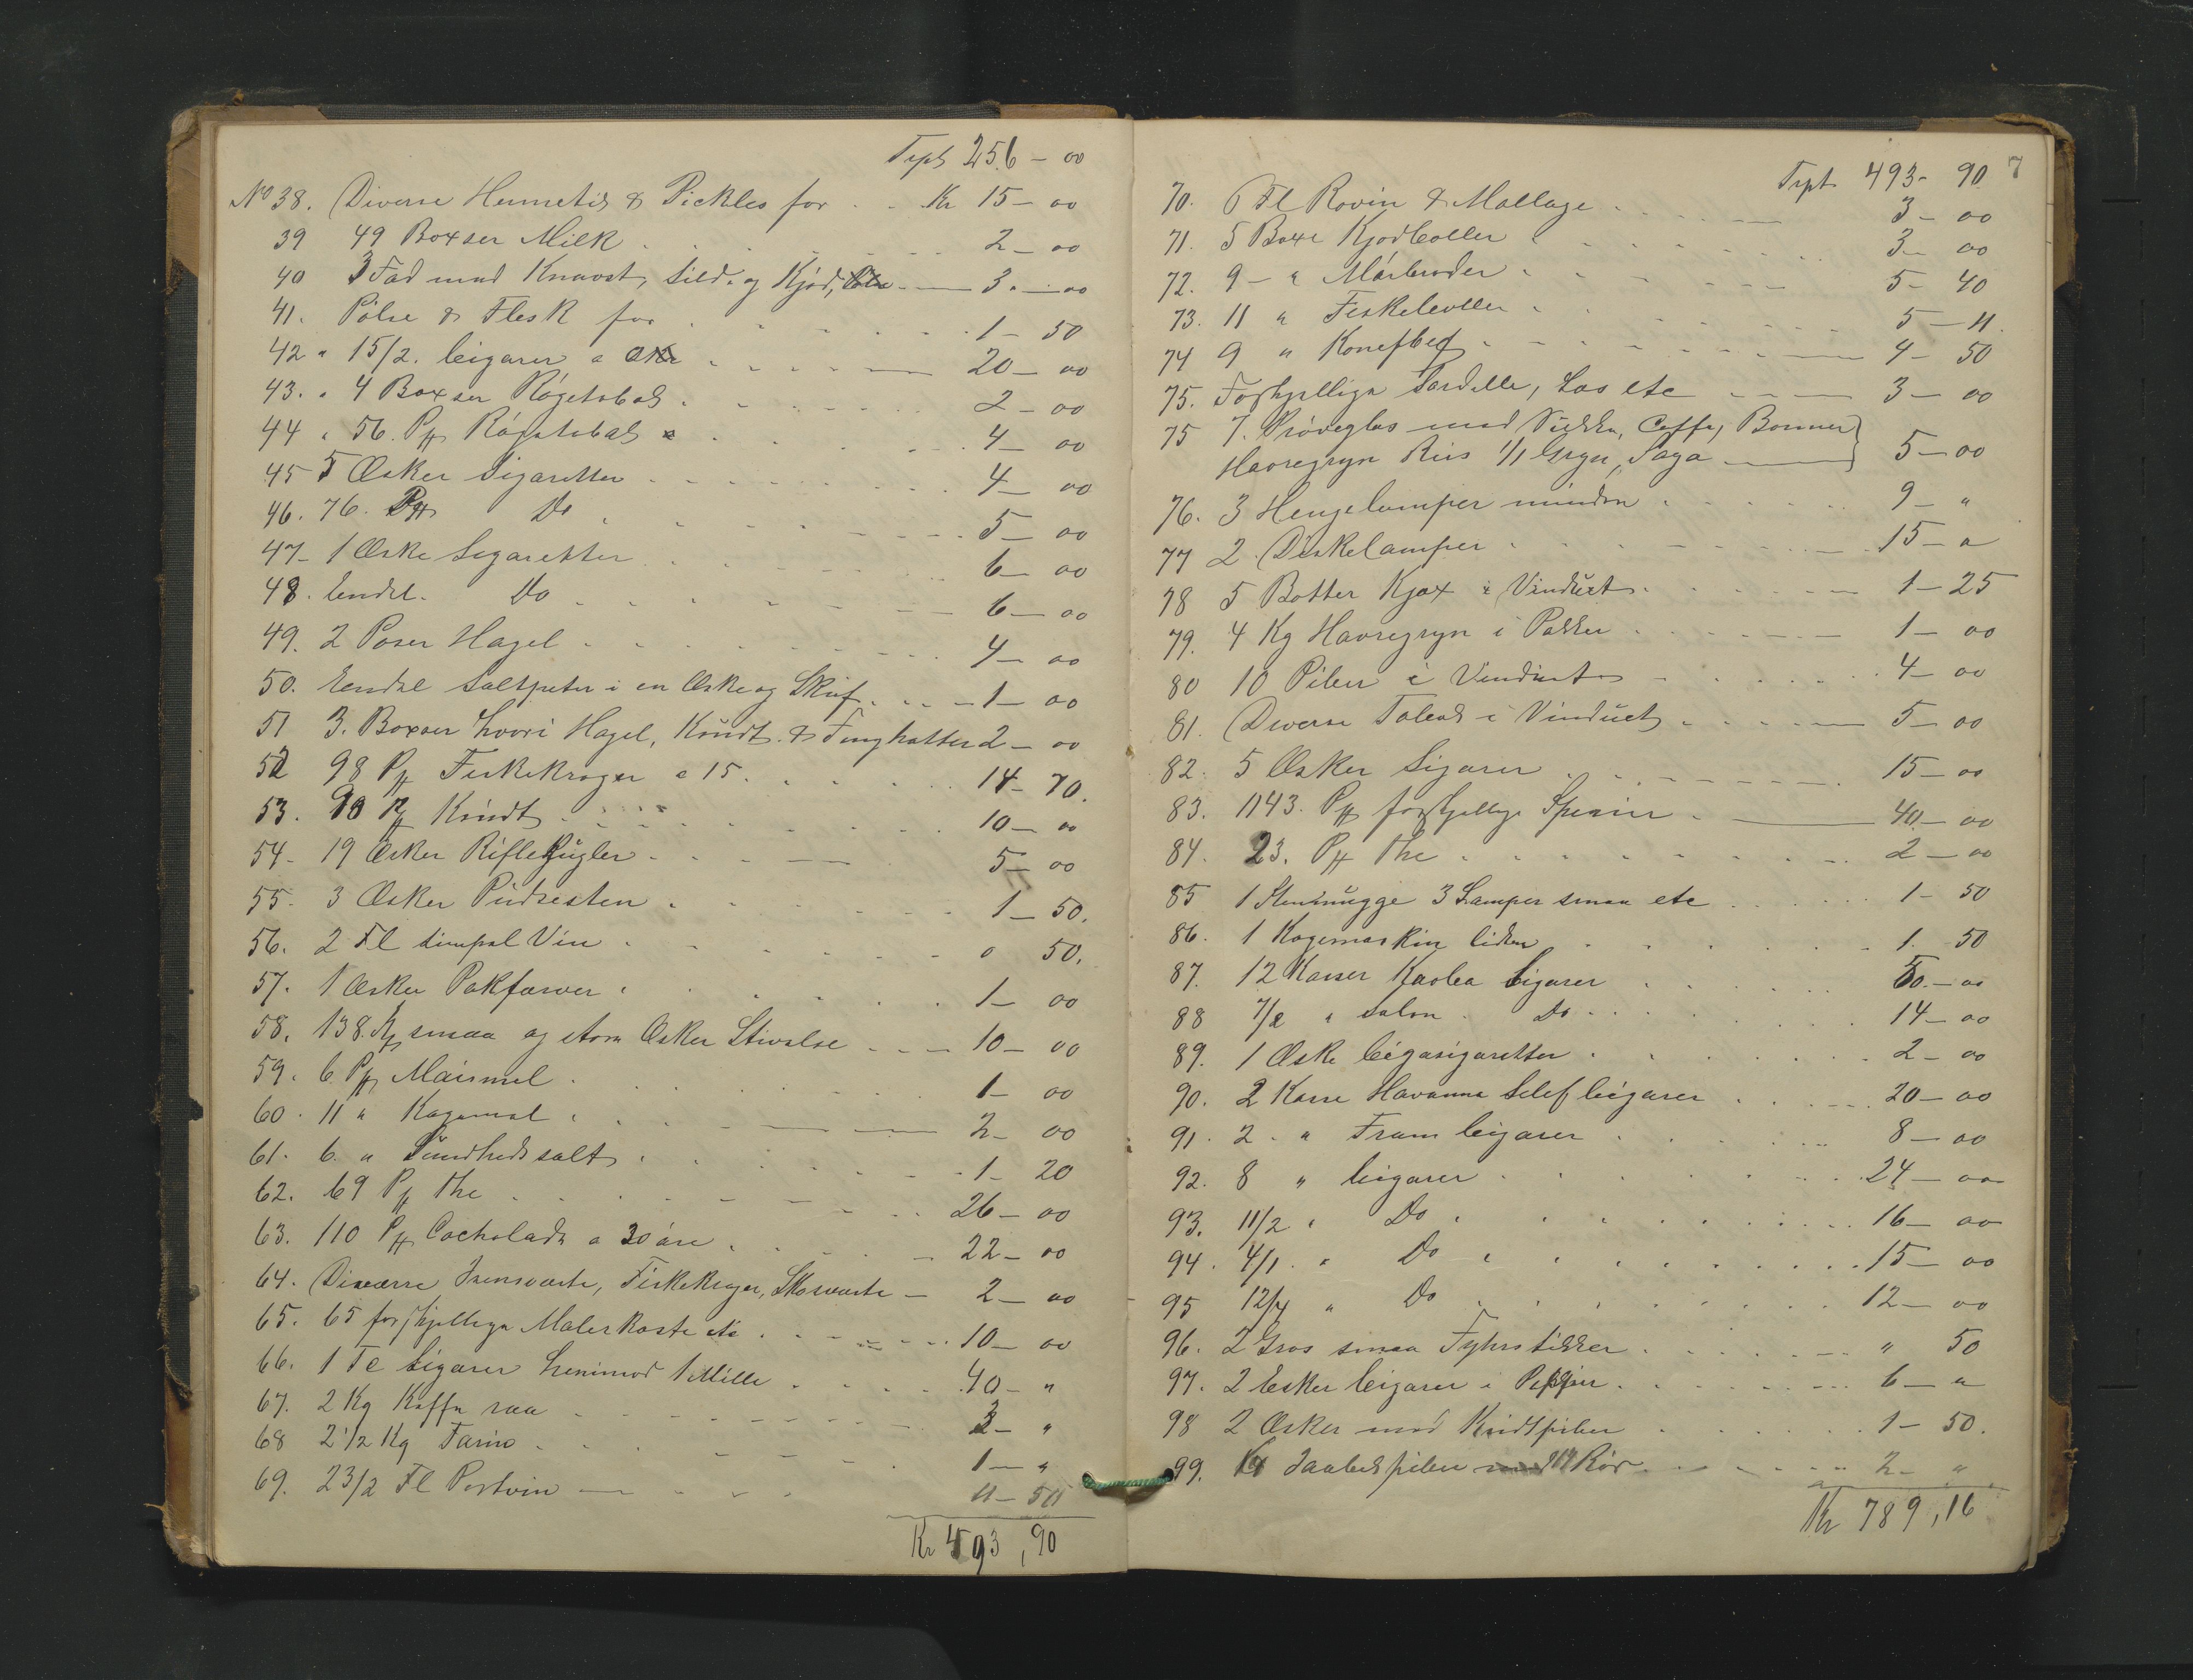 Trpt 256 - 00
No 38. Diverse Hermetik & Pickles for . . Kr 15 - 00
39 49 Boxser Milk . . 2 - 00
40 3 Fad med Knavost, Sild. og Kjød, 3. - 00
41. Pølse & Flesk for . . 1 - 50
42 " 15/2. Cigarer a . . 20 - 00
43. " 4 Boxser Røgetobak . . 2 - 00
44 " 56. Pk Røgetobak . . 4 - 00
45 5 Æsker Sigaretter . . 4 - 00
46. 76. Pk Do . . 5 - 00
47 - 1 Æske Sigaretter . . 6 - 00
48. Endel. Do . . 6 - 00
49. 2 Poser Hagel . . 4 - 00
50. Endel Saltpeter i en Æske og Skuf . . 1 - 00
51 3. Boxser hvori Hagel, Krudt & Fænghatter 2 - 00
52 98 Pk Fiskekroger a 15 . . 14 - 70.
53. 90 Pk Krudt . . 10 - 00
54 - 19 Æsker Riflekugler . . 5 - 00
55. 3 Æsker Pudsesten . . 1 - 50.
56. 2 Fl simpel Vin . . 0 50.
57. 1 Æsker Pakfarver . . 1 - 00
58. 138. Pk smaa og store Æsker Stivelse . . 10 - 00
59. 6 Pk Maismel . . 1 - 00
60. 11 " Kagemel . . 2 - 00
61. 6. " Sundhedssalt . . 1 - 20
62. 69 Pk The . . 26 - 00
63. 110 Pk Cocholade a 20 øre . . 22 - 00
64. Diverse Fiskekroger, Skosværte - 2 - 00
65. 65 forskjellige Malerkoste etc . . 10 - 00
66. 1 Te Sigarer henimod 1 Mille . . 40 - "
67. 2 Kg Kaffe raa . . 3 - "
68 2 1/2 Kg Farin . . 1 - "
69. 23/2 Fl Portvin . . 11 - 50
Kr 493,90
7
Trpt 493 - 90
70. 6 Fl Rovin & Mallage . . 3 - 00
71. 5 Boxe Kjødboller . . 3 - 00
72. 9 - " Mørbrader . . 5 - 40
73. 11 " Fiskeboller . . 5 - 11.
74 9 " . . 4 - 50
75. Forskjellige Sardeller, Lax etc 3 - 00
75 7. Prøveglas med Vikke, Caffe, Bønner
Havregryn Riis 1/1 Gryn, Sago 5 - 00
76. 3 Hengelamper mindre . . 9 - "
77 2. Diskelamper . . 15 - "
78 5 Botter Kjæx i Vinduet . . 1 - 25
79. 4 Kg Havregryn i Pakker . . 1 - 00
80 10 Piber i Vinduet . . 4 - 00
81. Diverse Tobak i Vinduet . . 5 - 00
82. 5 Æsker Sigarer . . 15 - 00
83. 1143. Pk forskjellige Speserier . . 40 - 00
84. 23. Pk The . . 2 - 00
85 1 Stenmugge 3 Lamper smaa etc . . 1 - 50
86. 1 Kogemaskin liden . . 1. 50
87. 12 Kasser Kaolea Cigarer . . 50. - 00
88 7/2 " Salon. Do . . 14 - 00
89. 1 Æske Cigasigaretter . . 2 - 00
90. 2 Kasse Havanna Selef Cigarer . . 20 - 00
91. 2. " Fram Cigarer . . 8 - 00
92. 8 " Cigarer . . 24 - 00
93. 11/2 " Do . . 16 - 00
94. 4/1. " Do . . 15 - 00
95 12/4 " Do . . 12 - 00
96. 2 Gros smaa Fyhrstikker . . " 50
97. 2 Esker Cigarer i Papper . . 6 - "
98 2 Æsker med Kridtpiber . . 1 - 50.
99. 14 Jaabekpiber med Rør . . 2 - "
Kr 789,16